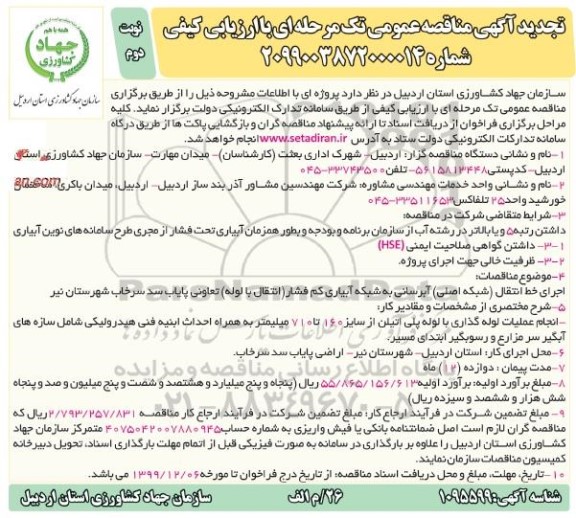 تجدید آگهی مناقصه عمومی تک مرحله ای با ارزیابی کیفی
شماره ۲۰۹۹۰۰۳۸۷۲۰۰۰۰۱۴
نوبت
دوم
همه با هم
جهاد
کشاورزی
سازمان جهاد کشاورزی استان اردبیل
سازمان جهاد کشاورزی استان اردبیل در نظر دارد پروژه ای با اطلاعات مشروحه ذیل را از طریق برگزاری
مناقصه عمومی تک مرحله ای با ارزیابی کیفی از طریق سامانه تدارک الکترونیکی دولت برگزار نماید. کلیه
مراحل برگزاری فراخوان از دریافت اسناد تا ارائه پیشنهاد مناقصه گران و بازگشایی پاکت ها از طریق درگاه
سامانه تدارکات الکترونیکی دولت ستاد به آدرس www.setadiran.ir انجام خواهد شد.
۱-نام و نشانی دستگاه مناقصه گزار: اردبیل- شهرک اداری بعثت (کارشناسان)- میدان مهارت- سازمان جهاد کشاورزی استان
اردبیل- کدپستی ۵۶۱۵۸۱۳۴۴۸- تلفن ۳۳۷۴۳۵۰۰-۰۴۵
۲-نام و نشانی واحد خدمات مهندسی مشاوره: شرکت مهندسین مشاور آذر بند ساز اردبیل- اردبیل، میدان باکری ساختمان
خورشید واحد ۲۵ تلفاکس ۳۳۵۱۱۶۵۳-۰۴۵
۳-شرایط متقاضی شرکت در مناقصه:
داشتن رتبه ۵ و یا بالاتر در رشته آب از سازمان برنامه و بودجه و بطور همزمان آبیاری تحت فشار از مجری طرح سامانه های نوین آبیاری
۳-۱- داشتن گواهی صلاحیت ایمنی (HSE)
۳-۲- ظرفیت خالی جهت اجرای پروژه.
۴-موضوع مناقصات:
اجرای خط انتقال (شبکه اصلی) آبرسانی به شبکه آبیاری کم فشار (انتقال با لوله) تعاونی پایاب سد سرخاب شهرستان نیر
۵-شرح مختصری از مشخصات و مقادیر کار:
-انجام عملیات لوله گذاری با لوله پلی اتیلن از سایز ۱۶۰ تا ۷۱۰ میلیمتر به همراه احداث ابنیه فنی هیدرولیکی شامل سازه های
آبگیر سر مزارع و رسوبگیر ابتدای مسیر.
۶-محل اجرای کار: استان اردبیل- شهرستان نیر- اراضی پایاب سد سرخاب.
۷-مدت پیمان: دوازده (۱۲) ماه
۸-مبلغ برآورد اولیه: برآورد اولیه ۵۵/۸۶۵/۱۵۶/۶۱۳ ریال (پنجاه و پنج میلیارد و هشتصد و شصت و پنج میلیون و صد و پنجاه
شش هزار و ششصد و سیزده ریال)
۹- مبلغ تضمین شرکت در فرآیند ارجاع کار: مبلغ تضمین شرکت در فرآیند ارجاع کار مناقصه ۲/۷۹۳/۲۵۷/۸۳۱ ریال که
مناقصه گران لازم است اصل ضمانتنامه بانکی یا فیش واریزی به شماره حساب ۴۰۷۵۰۴۲۰۰۷۸۸۰۹۴۵ متمرکز سازمان جهاد
کشاورزی استان اردبیل را علاوه بر بارگذاری در سامانه به صورت فیزیکی قبل از اتمام مهلت بارگذاری اسناد، تحویل دبیرخانه
کمیسیون مناقصات سازمان نمایند.
۱۰-تاریخ، مهلت، مبلغ و محل دریافت اسناد مناقصه: از تاریخ درج فراخوان تا مورخه ۱۳۹۹/۱۲/۰۶ می باشد.
شناسه آگهی: ۱۰۹۵۵۹۹
۲۶/م الف
سازمان جهاد کشاورزی استان اردبیل